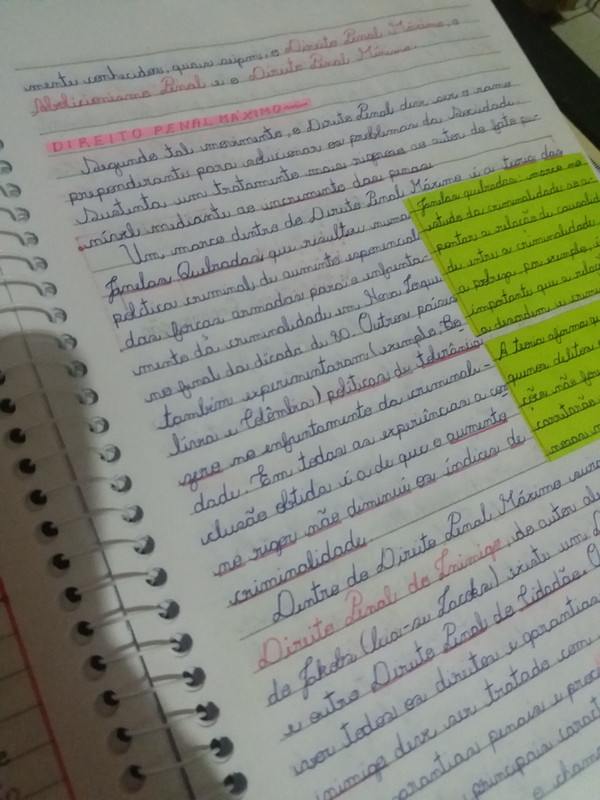 mente conhecidos, quais sejam, o Direito Penal Máximo, o
Abolicionismo Penal e o Direito Penal Mínimo.
DIREITO PENAL MÁXIMO
Segundo tal movimento, o Direito Penal deve ser o ramo
preponderante para solucionar os problemas da Sociedade.
Sustenta um tratamento mais rigoroso ao autor do fato pu-
nível mediante ao incremento das penas.
Um marco dentro do Direito Penal Máximo é a teoria das
Janelas Quebradas que resultou numa
política criminal de aumento exponencial
das forças armadas para o enfrenta-
mento da criminalidade em Nova Iorque
no final da década de 80. Outros países
também experimentaram (exemplo, Bo-
lívia e Colômbia) políticas de tolerância
zero no enfrentamento da criminali-
dade. Em todas as experiências a con
clusão obtida é a de que o aumento
no rigor não diminui os índices de
criminalidade.
Dentro do Direito Penal Máximo
Direito Penal do Inimigo, do autor
do Jakobs (leia-se Jacobs) existe um
e outro Direito Penal do Cidadão. O
ver todos os direitos e garantias
inimigo deve ser tratado com
garantias penais e
principais
o
Janelas quebradas, marco no
estudo da criminalidade ao a
pontar a relação de causalid
de entre a criminalidade
a pobreza, por exemplo,
importante que a relaç
a desordem e crimi
A teoria afirma q
quenos delitos
ções não for